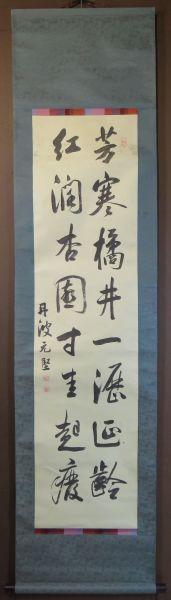 芳寒橘井一瀝延齡
紅潤杏園寸生起癈
丹波元堅